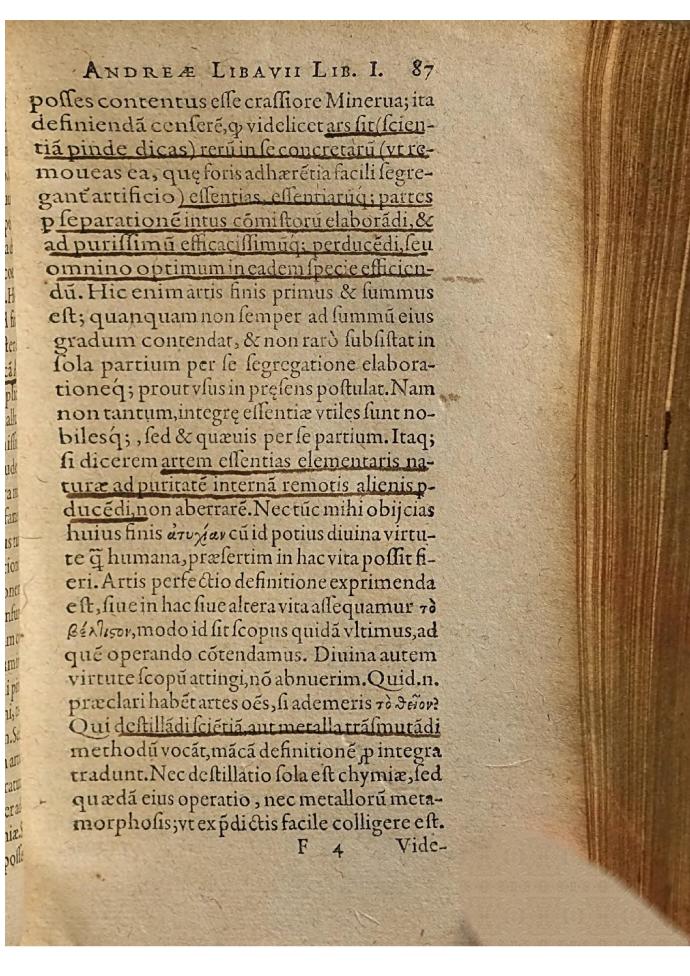 ANDREÆ LIBAVII LIB. I. 87
posses contentus esse crassiore Minerua; ita
definiendā censerē, ꝙ videlicet ars sit (scien-
tiā pinde dicas) rerū in se concretarū (vt re-
moueas ea, quę foris adhærētia facili segre-
gant᷑ artificio) essentias, essentiarūq́; partes
p separationē intus cōmistorū elaborādi, &
ad purissimū efficacissimūq́; perducēdi, seu
omnino optimum in eadem specie efficien-
dū. Hic enim artis finis primus & summus
est; quanquam non semper ad summū eius
gradum contendat, & non rarò subsistat in
sola partium per se segregatione elabora-
tioneq́; prout vsus in pręsens postulat. Nam
non tantum, integrę essentiæ vtiles sunt no-
bilesq́; , sed & quæuis per se partium. Itaq;
si dicerem artem essentias elementaris na-
turæ ad puritatē internā remotis alienis p-
ducēdi, non aberrarē. Nec tūc mihi obijcias
huius finis ἀτυχίαν cū id potius diuina virtu-
te q̃ humana, præsertim in hac vita possit fi-
eri. Artis perfectio definitione exprimenda
est, siue in hac siue altera vita assequamur τὸ
βέλτιϛον, modo id sit scopus quidā vltimus, ad
quē operando cōtendamus. Diuina autem
virtute scopū attingi, nō abnuerim. Quid.n.
præclari habēt artes oēs, si ademeris τὸ θεῖον?
Qui destillādi sciētiā, aut metalla trāsmutādi
methodū vocāt, mācā definitionē ꝓ integra
tradunt. Nec destillatio sola est chymiæ, sed
quædā eius operatio, nec metallorū meta-
morphosis; vt ex p̄dictis facile colligere est.
F 4 Vide-